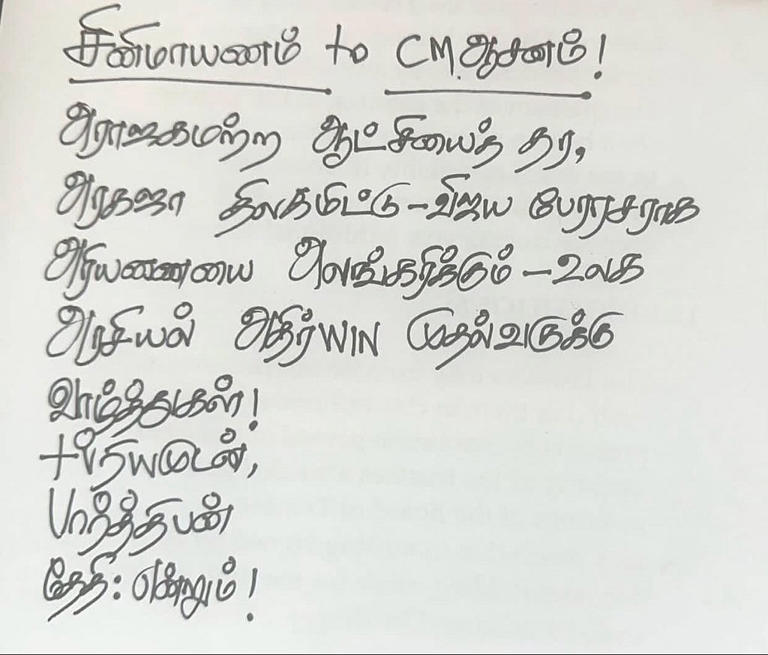 சினிமாயணம் to CM ஆசனம்!
அராஜகமற்ற ஆட்சியைத் தர,
அரகஜா திலகமிட்டு-விஜய பேரரசராக
அரியணையை அலங்கரிக்கும் - உலக
அரசியல் அதிர்WIN முதல்வருக்கு
வாழ்த்துகள்!
+வுடன்,
பார்த்திபன்
தேதி: என்றும்!